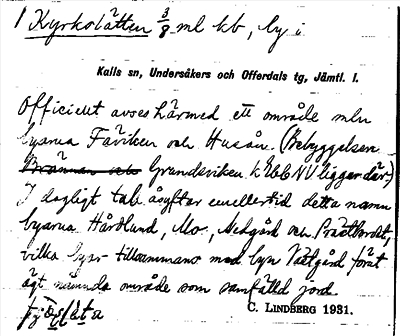 1 Kyrkslätten 3/8 ml kb, by i
Kalls sn, Undersåkers och Offerdals tg, Jämtl. l.
Officiellt avses härmed ett område mln
byarna Fäviken och Husån. (Bebyggelsen
Grundsviken k NV ligger där.)
I dagligt tal åsyftar emellertid detta namn
byarna Hårdlund, Mo, Nedgård och Prästbordet,
vilka byar tillsammans med byn Västgård förut
ägt nämnda område som samfälld jord.
C. LINDBERG 1931.